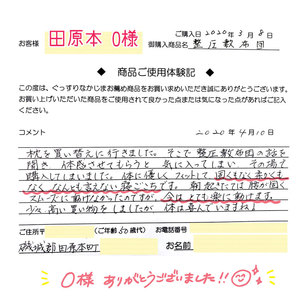 お客様 田原本 O様
ご購入日 2020年3月8日
御購入商品名 整圧敷布団
◆ 商品ご使用体験記 ◆
この度は、ぐっすりなかじまお薦め商品をお買い求めいただき誠にありがとうございます。
お買い上げいただいた商品をご使用されて良かった点または気になった点があればご記入ください。
コメント 2020年4月10日
枕を買い替えに行きました。そこで整圧敷布団の話を
聞き 体感させてもらうと 気に入ってしまい その場で
購入してしまいました。体に優しくフィットして固くもなく柔くも
なく なんとも言えない寝ごこちです。朝起きたては腰が固く
スムーズに動けなかったのですが、今はとても楽に動けます。
少々高い買い物をしましたが 体は喜んでいますね♪
ご住所〒 (ご年齢 50歳代) お電話番号
磯城郡田原本町 お名前
O様 ありがとうございました!!